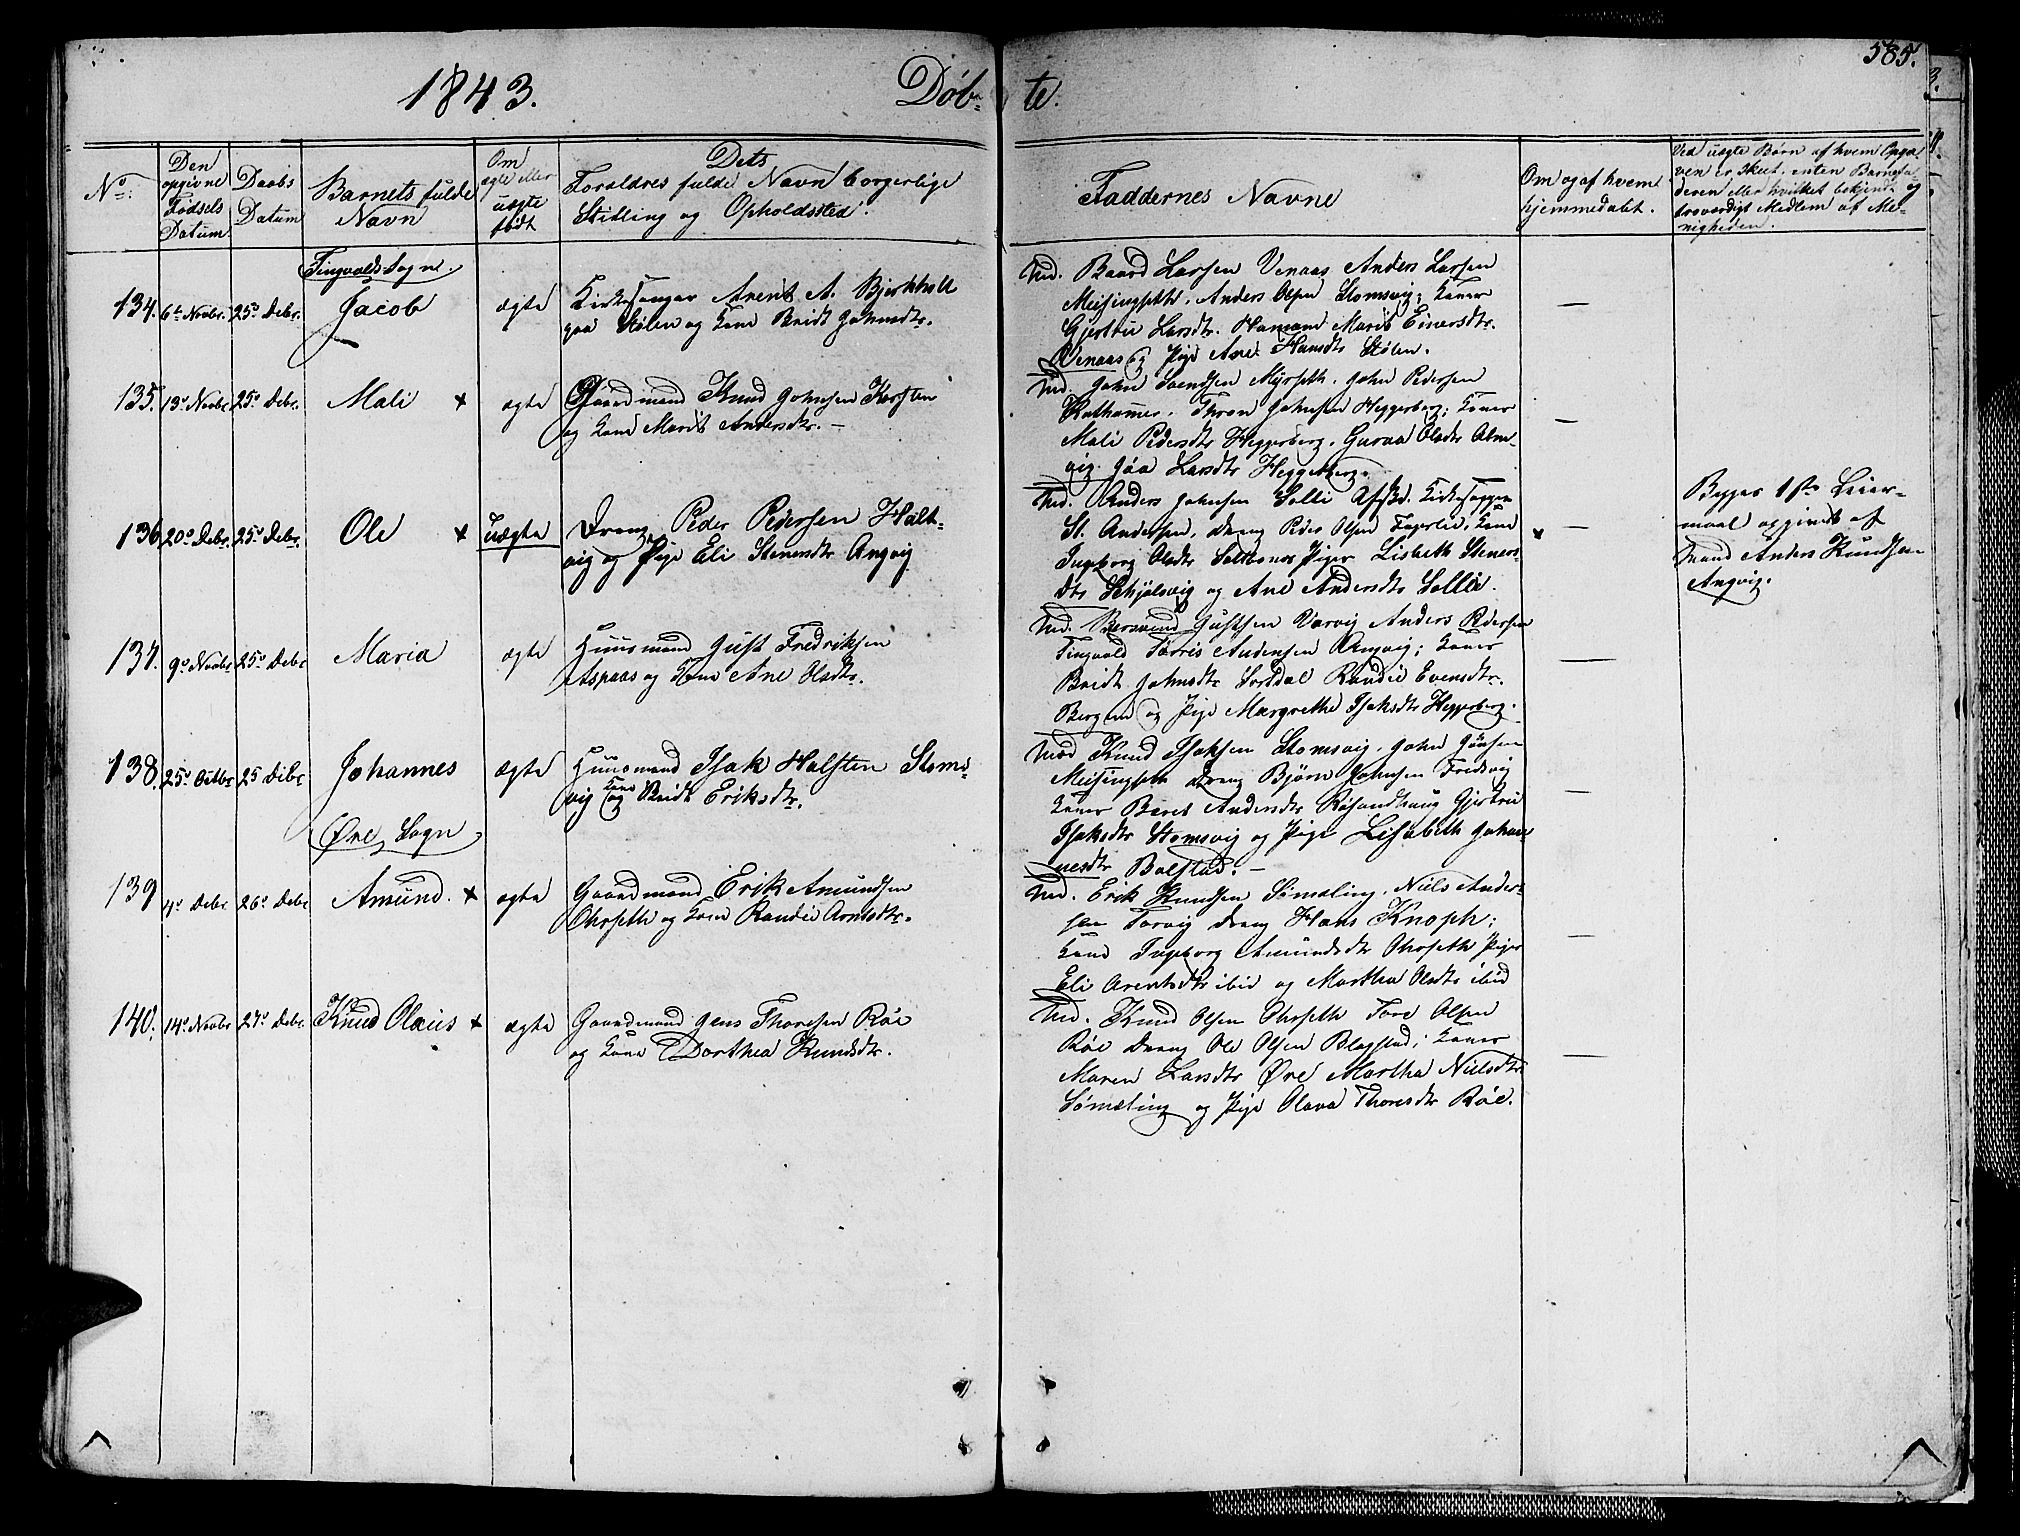 585.
1843. Døb-
te.
No:
Den opgivne Fødsels Datum
Daabs Datum
Barnets fulde Navn
Om ægte eller uægte født
Dets Forældres fulde Navn borgerlige Stilling og Opholdssted.
Faddernes Navne
Om og af hvem hjemmedøbt.
Ved uægte Børn af hvem Opgaven er skeet, enten Barnefaderen eller hvilket bekjendt og troværdigt Medlem af Menigheden.
Tingvolds Sogn.
134. 6te Novbr. 25o Debr. Jacob ægte Kirkesanger Arent A. Bjerkholt
paa Stølen og Kone Bridt Johnsdtr.
Ved. Baard Larsen Venaas Anders Larsen
Meisingseth, Anders Olsen Stomsvig; Koner
Gjertrü Larsdtr. Hamand Marit Einersdtr.
Venaas og Pige Ane Hansdtr Stølen.
135. 13o Novbr 25o Debr. Mali x ægte Gaardmand Knud Johnsen Karsten
og Kone Marit Andersdtr. —
Ved. John Svendsen Myrseth, John Pedersen
Kathammer. Thron Johnsen Heggerberg; Koner
Mali Pedersdtr Heggerberg, Guroa Olsdtr Alm-
vig. Göa Larsdtr Heggerberg.
136 20o Debr. 25o Debr. Ole x uægte Dreng Peder Pedersen Holt-
vig og Pige Eli Stenersdtr Angvig
Ved. Anders Johnsen Solli Afskd. Kirkesanger
St. Andersen, Dreng Peder Olsen Fagerlie, Kone
Ingeborg Olsdtr Piger Lisbeth Steners-
dtr Schjølsvig og Ane Andersdtr Sollie.
x
Begges 1ste Leier-
maal opgivet af
Mand Anders Knudsen
Angvig.
137. 9o Novbr 25o Debr Maria ægte Huusmand Gust Fredriksen
Aspaas og Kone Ane Olsdtr.
Ved. Bersvend Gustsen Vorvig Anders Pedersen
Tingvold Torris Andersen Angvig; Koner
Bridt Johnsdtr Sortdal Randie Evensdtr.
Bergem og Pige Margrethe Isaksdtr Heggerberg.
138. 25o Octbr 25 Debr Johannes ægte Huusmand Isak Halsten Stoms-
vig og Kone Bridt Eriksdtr.
Ved Knud Isaksen Stomsvig. John Gönsen
Meisingseth Dreng Bjørn Johnsen Fredsvig
Koner Beret Andersdtr Røsandhaug Gjertrü
Isaksdtr Stomsvig og Pige Lisabeth Johan-
nesdtr Bolstad. —
Øre Sogn
139 4o Debr 26o Debr Amünd. x ægte Gaardmand Erik Amundsen
Ohrseth og Kone Randie Arntsdtr.
Ved. Erik Knudsen Sømæling, Niels Ander-
sen Torvig Dreng Hans Knoph;
Kone Ingeborg Amündsdtr Ohrseth Piger
Eli Arentsdtr ibid og Martha Olsdtr ibid
140. 14o Novbr 27o Debr. Knud Olaus x ægte Gaardmand Jens Thoresen Röe
og Kone Dorthea Knudsdtr.
Ved. Knud Olsen Ohrseth Tore Olsen
Röe Dreng Ole Olsen Blegstad; Koner
Maren Larsdtr Øre Martha Nielsdtr
Sömæling og Pige Olava Thoresdtr Röe.